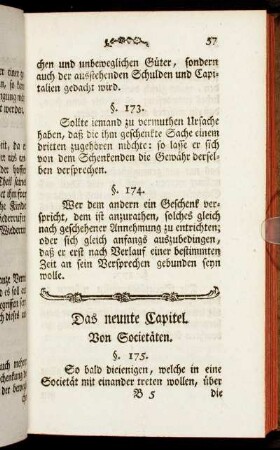 57
chen und unbeweglichen Güter, sondern
auch der ausstehenden Schulden und Capi-
talien gedacht wird.
§. 173.
Sollte iemand zu vermuthen Ursache
haben, daß die ihm geschenkte Sache einem
dritten zugehören möchte: so lasse er sich
von dem Schenkenden die Gewähr dersel-
ben versprechen.
§. 174.
Wer dem andern ein Geschenk ver-
spricht, dem ist anzurathen, solches gleich
nach geschehener Annehmung zu entrichten;
oder sich gleich anfangs auszubedingen,
daß er erst nach Verlauf einer bestimmten
Zeit an sein Versprechen gebunden seyn
wolle.
Das neunte Capitel.
Von Societäten.
§. 175.
So bald dieienigen, welche in eine
Societät mit einander treten wollen, über
B 5 die